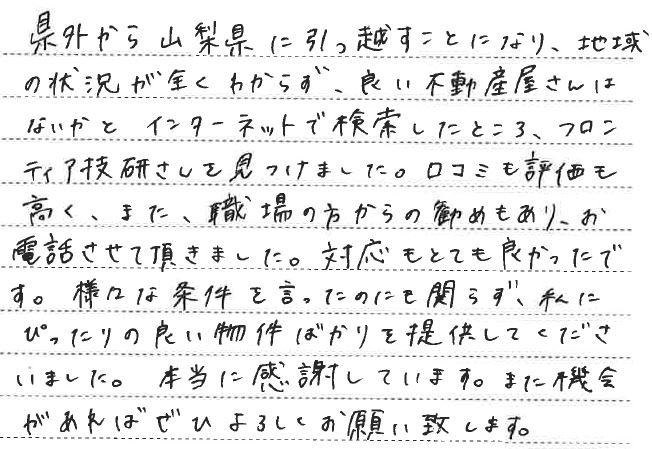 県外から山梨県に引っ越すことになり、地域
の状況が全くわからず、良い不動産屋さんは
ないかとインターネットで検索したところ、フロン
ティア技研さんを見つけました。口コミも評価も
高く、また、職場の方からの勧めもあり、お
電話させて頂きました。対応もとても良かったで
す。様々な条件を言ったのにも関らず、私に
ぴったりの良い物件ばかりを提供してくださ
いました。本当に感謝しています。また機会
があればぜひよろしくお願い致します。